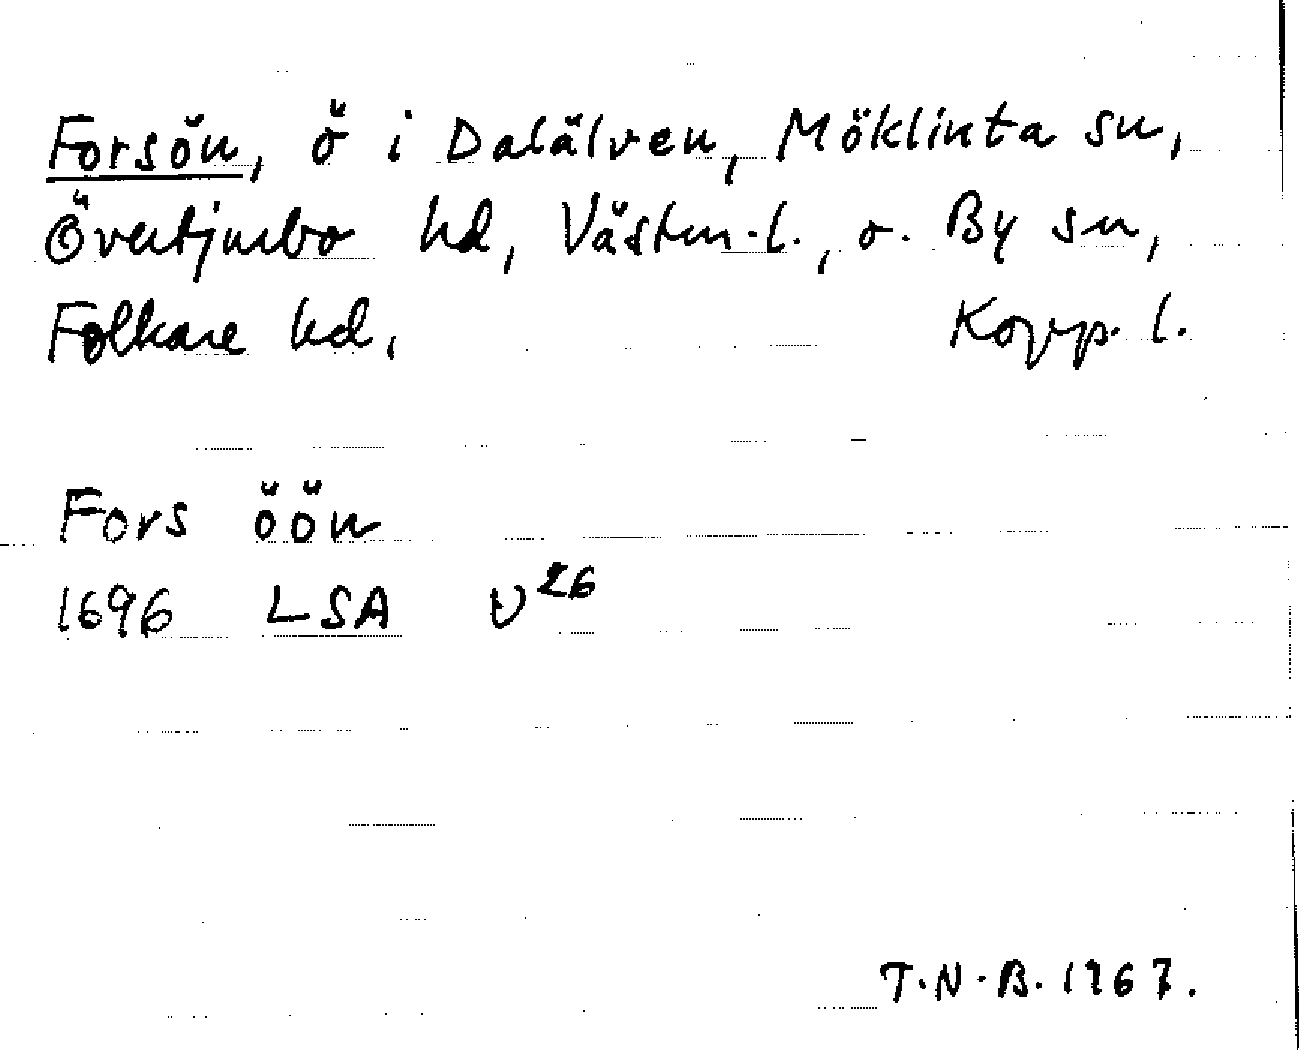 Forsön, ö i Dalälven, Möklinta sn,
Övertjurbo hd, Västm. l., o. By sn,
Folkare hd, Kopp. l.
Fors öön
1696 LSA U26
T.N.B. 1967.